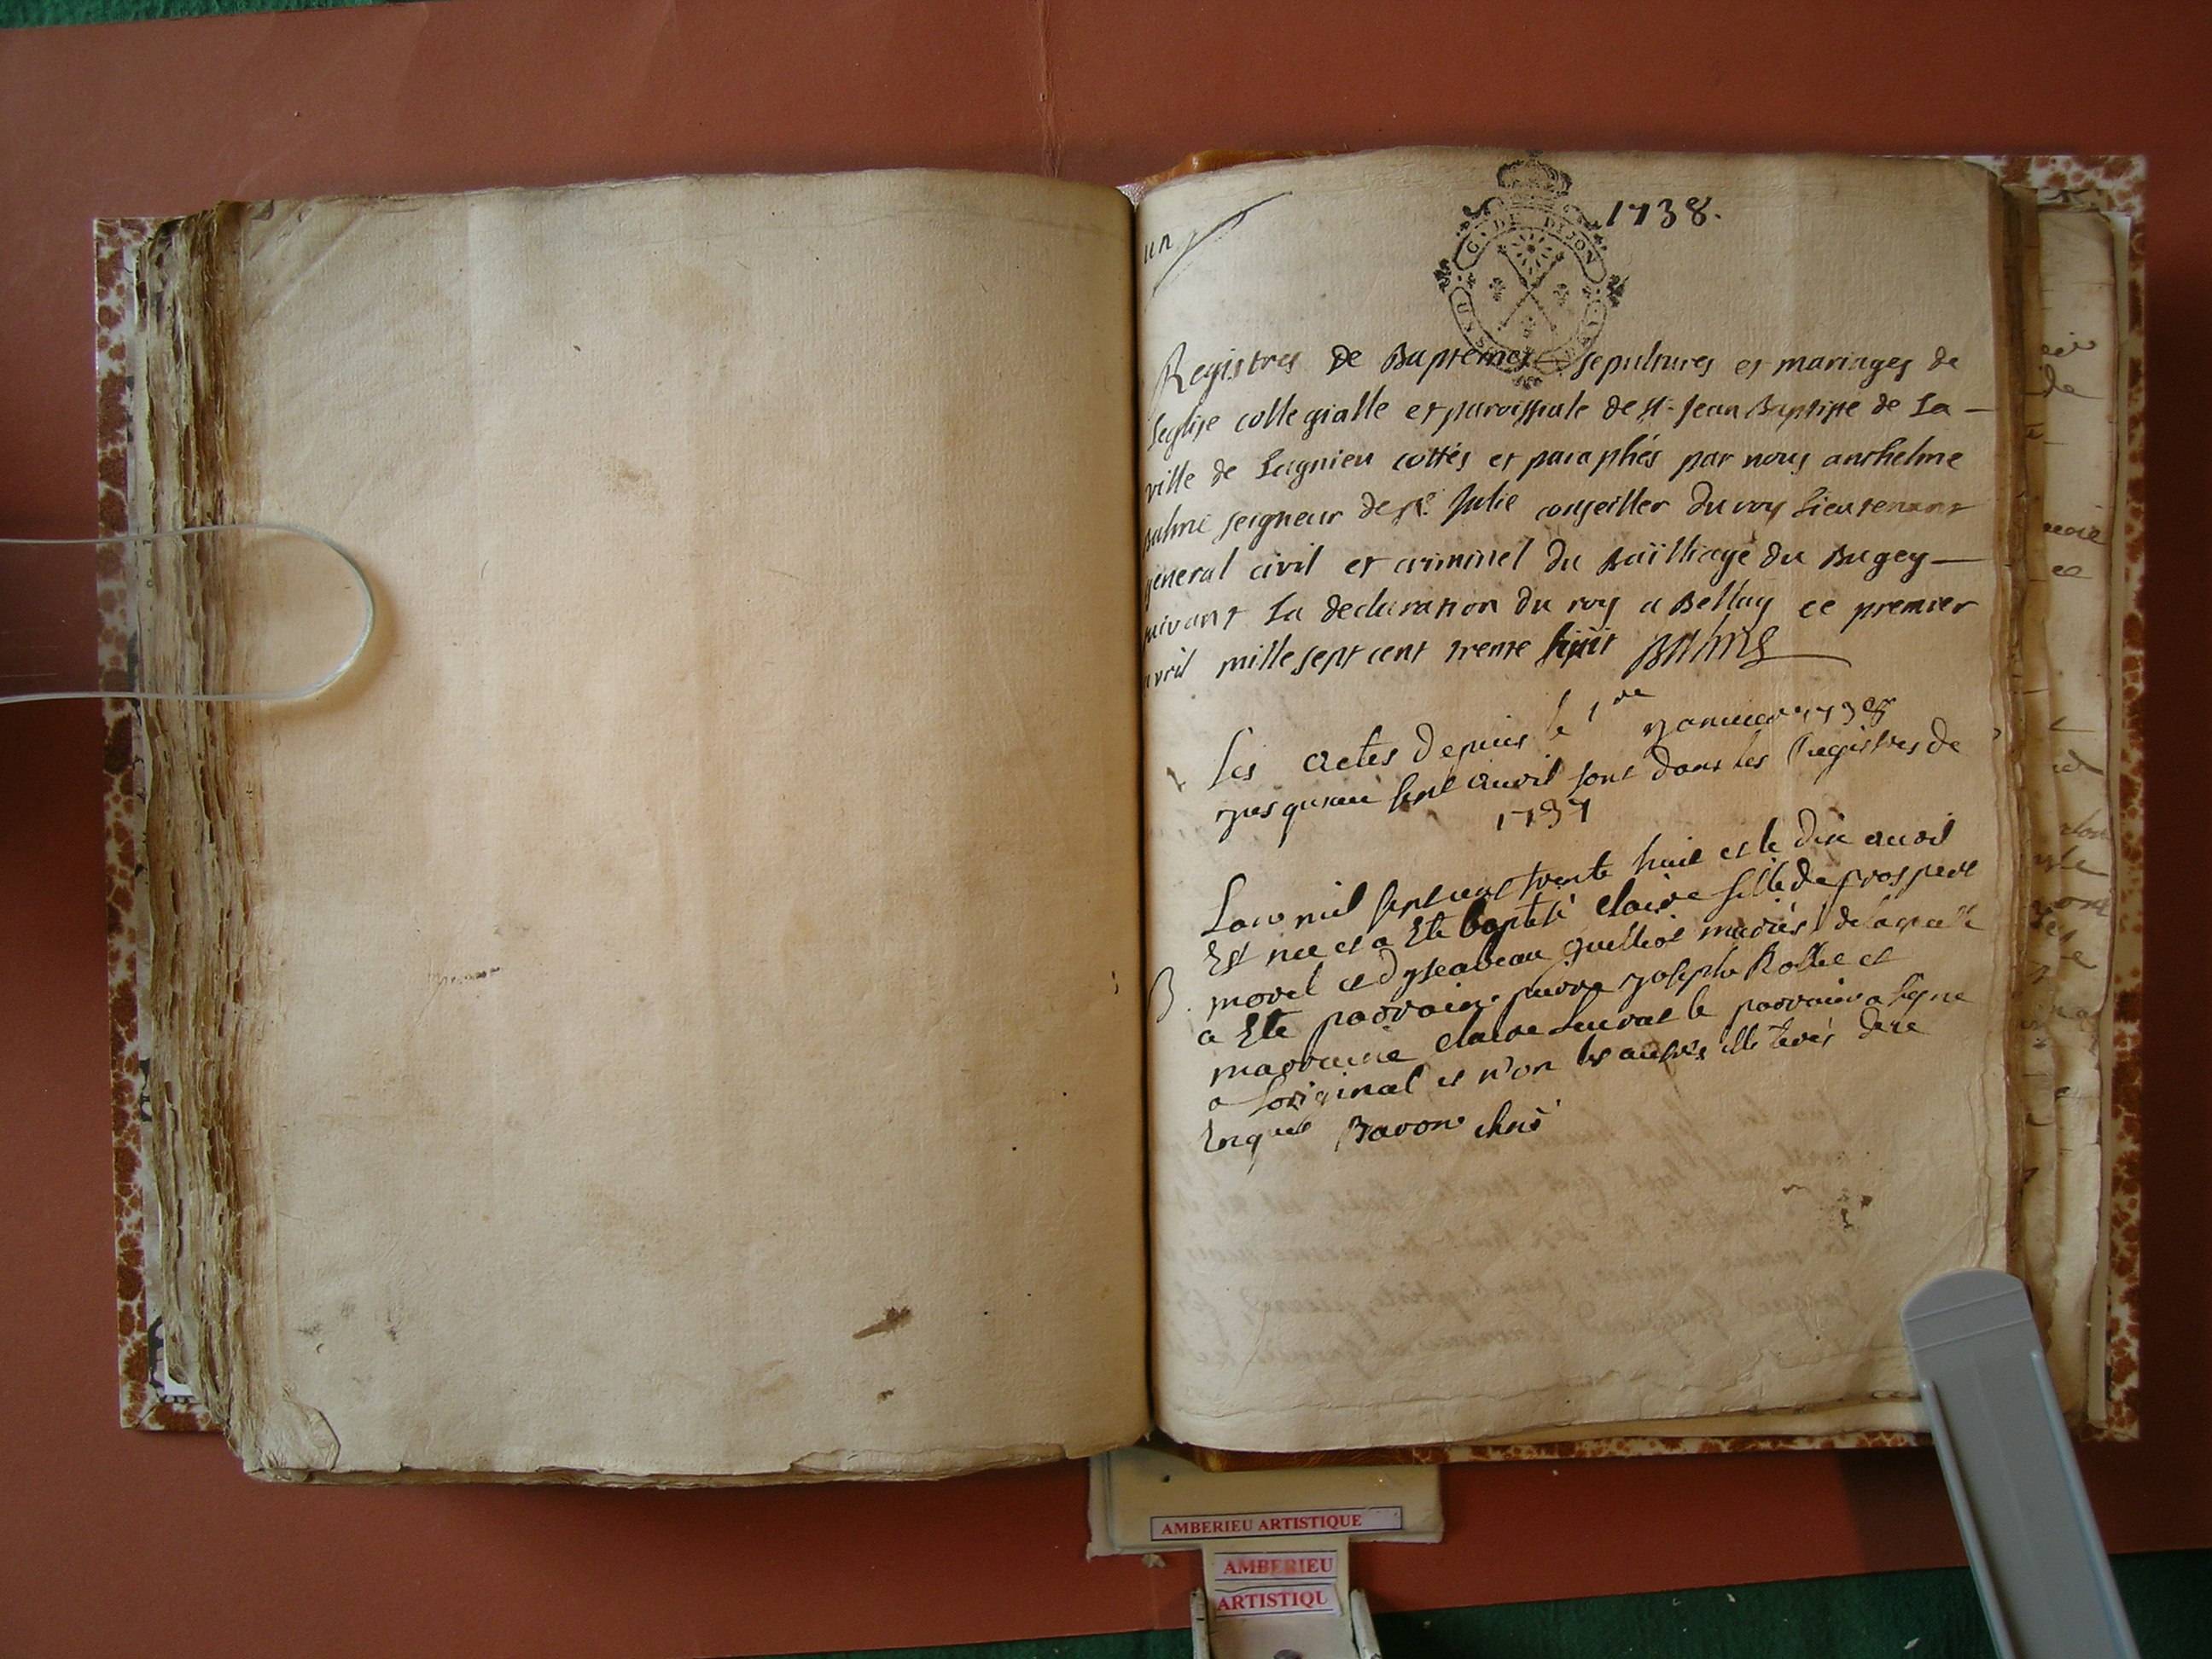 un
1738.
G. DE DIJON
Registres de Baptemes sepultures et mariages de
leglise collegialle et paroissiale de st. Jean Baptiste de La
ville de Lagnieu cottés et paraphés par nous anthelme
balme seigneur de ste Julie conseiller du roy Lieutenant
general civil et criminel du Bailliage du Bugey
suivant La declaration du roy a Bellay ce premier
avril mille sept cent trente huit Balme
Les actes depuis le 1er yanuier 1738
yusquau sept auril sont dans les Registres de
1737
Lan mil sept cent trente huit et le dix auril
Est nee et a Ete baptisé claire fille de prospere
B. morel et dyseabeau mariés de laquelle
a Ete parrain pierre yoseph Rollet et
marraine claire le parrain a signe
a Loriginal et non les autres illiterés de ce
Enquis Baron chne
AMBERIEU ARTISTIQUE
AMBERIEU
ARTISTIQU